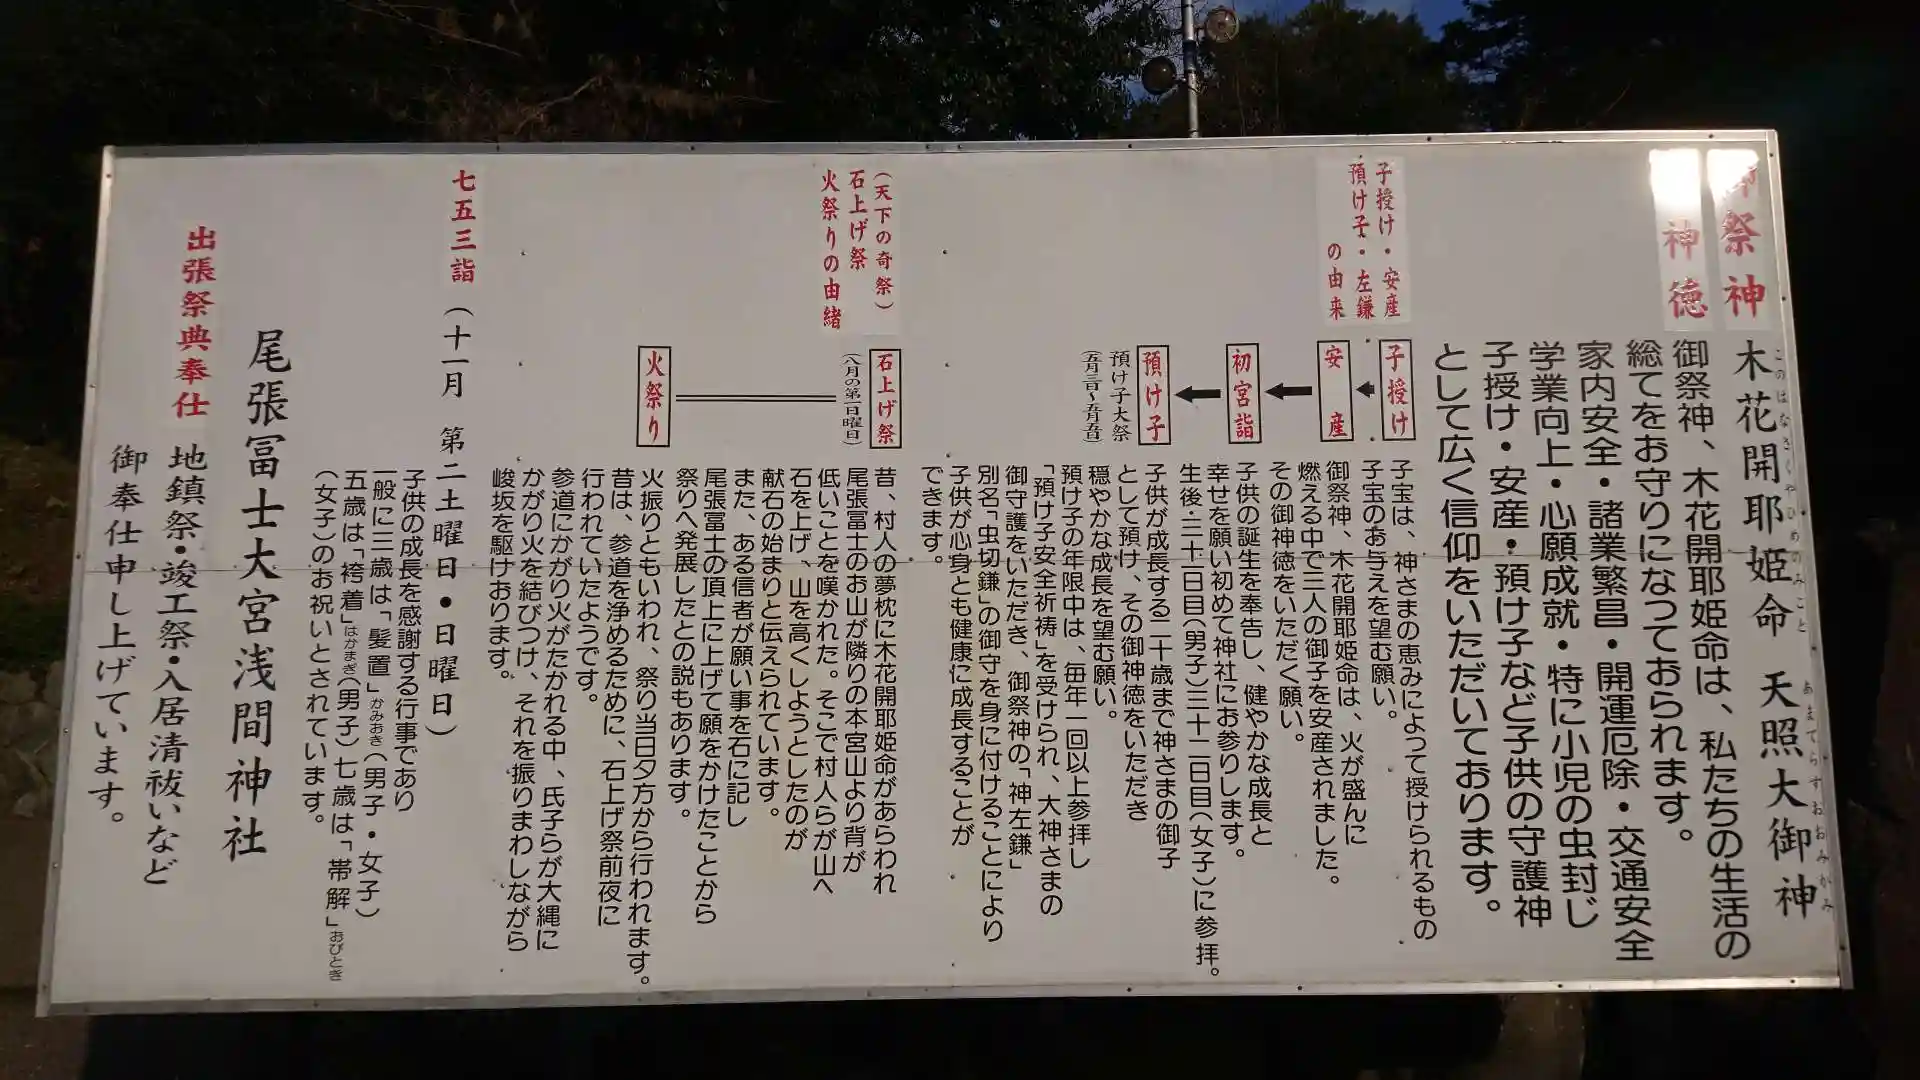 御祭神
木花開耶姫命 天照大御神
このはなさくやひめのみこと あまてらすおおみかみ
神徳
御祭神、木花開耶姫命は、私たちの生活の
総てをお守りになっておられます。
家内安全・諸業繁昌・開運厄除・交通安全
学業向上・心願成就・特に小児の虫封じ
子授け・安産・預け子など子供の守護神
として広く信仰をいただいております。
子授け・安産
預け子・左鎌
の由来
子授け
子宝は、神さまの恵みによって授けられるもの
子宝のお与えを望む願い。
安産
御祭神、木花開耶姫命は、火が盛んに
燃える中で三人の御子を安産されました。
その御神徳をいただく願い。
初宮詣
子供の誕生を奉告し、健やかな成長と
幸せを願い初めて神社にお参りします。
生後・三十一日目(男子)三十二日目(女子)に参拝。
預け子
預け子大祭
(五月三日〜五月五日)
子供が成長する二十歳まで神さまの御子
として預け、その御神徳をいただき
穏やかな成長を望む願い。
預け子の年限中は、毎年一回以上参拝し
「預け子安全祈祷」を受けられ、大神さまの
御守護をいただき、御祭神の「神左鎌」
別名「虫切鎌」の御守を身に付けることにより
子供が心身とも健康に成長することが
できます。
(天下の奇祭)
石上げ祭
火祭りの由緒
石上げ祭
(八月の第一日曜日)
昔、村人の夢枕に木花開耶姫命があらわれ
尾張冨士のお山が隣りの本宮山より背が
低いことを嘆かれた。そこで村人らが山へ
石を上げ、山を高くしようとしたのが
献石の始まりと伝えられています。
また、ある信者が願い事を石に記し
尾張冨士の頂上に上げて願をかけたことから
祭りへ発展したとの説もあります。
火祭り
火振りともいわれ、祭り当日夕方から行われます。
昔は、参道を浄めるために、石上げ祭前夜に
行われていたようです。
参道にかがり火がたかれる中、氏子らが大縄に
かがり火を結びつけ、それを振りまわしながら
峻坂を駆けおります。
七五三詣
(十一月 第二土曜日・日曜日)
子供の成長を感謝する行事であり
一般に三歳は「髪置」かみおき(男子・女子)
五歳は「袴着」はかまぎ(男子)七歳は「帯解」おびとき
(女子)のお祝いとされています。
尾張冨士大宮浅間神社
出張祭典奉仕
地鎮祭・竣工祭・入居清祓いなど
御奉仕申し上げています。